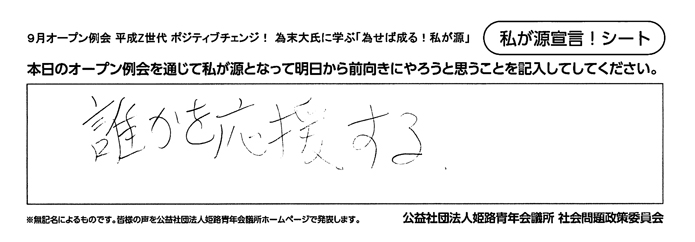 9月オープン例会 平成Z世代 ポジティブチェンジ！ 為末大氏に学ぶ「為せば成る！私が源」
私が源宣言！シート
本日のオープン例会を通じて私が源となって明日から前向きにやろうと思うことを記入してしてください。
誰かを応援する.
※無記名によるものです。皆様の声を公益社団法人姫路青年会議所ホームページで発表します。
公益社団法人姫路青年会議所 社会問題政策委員会